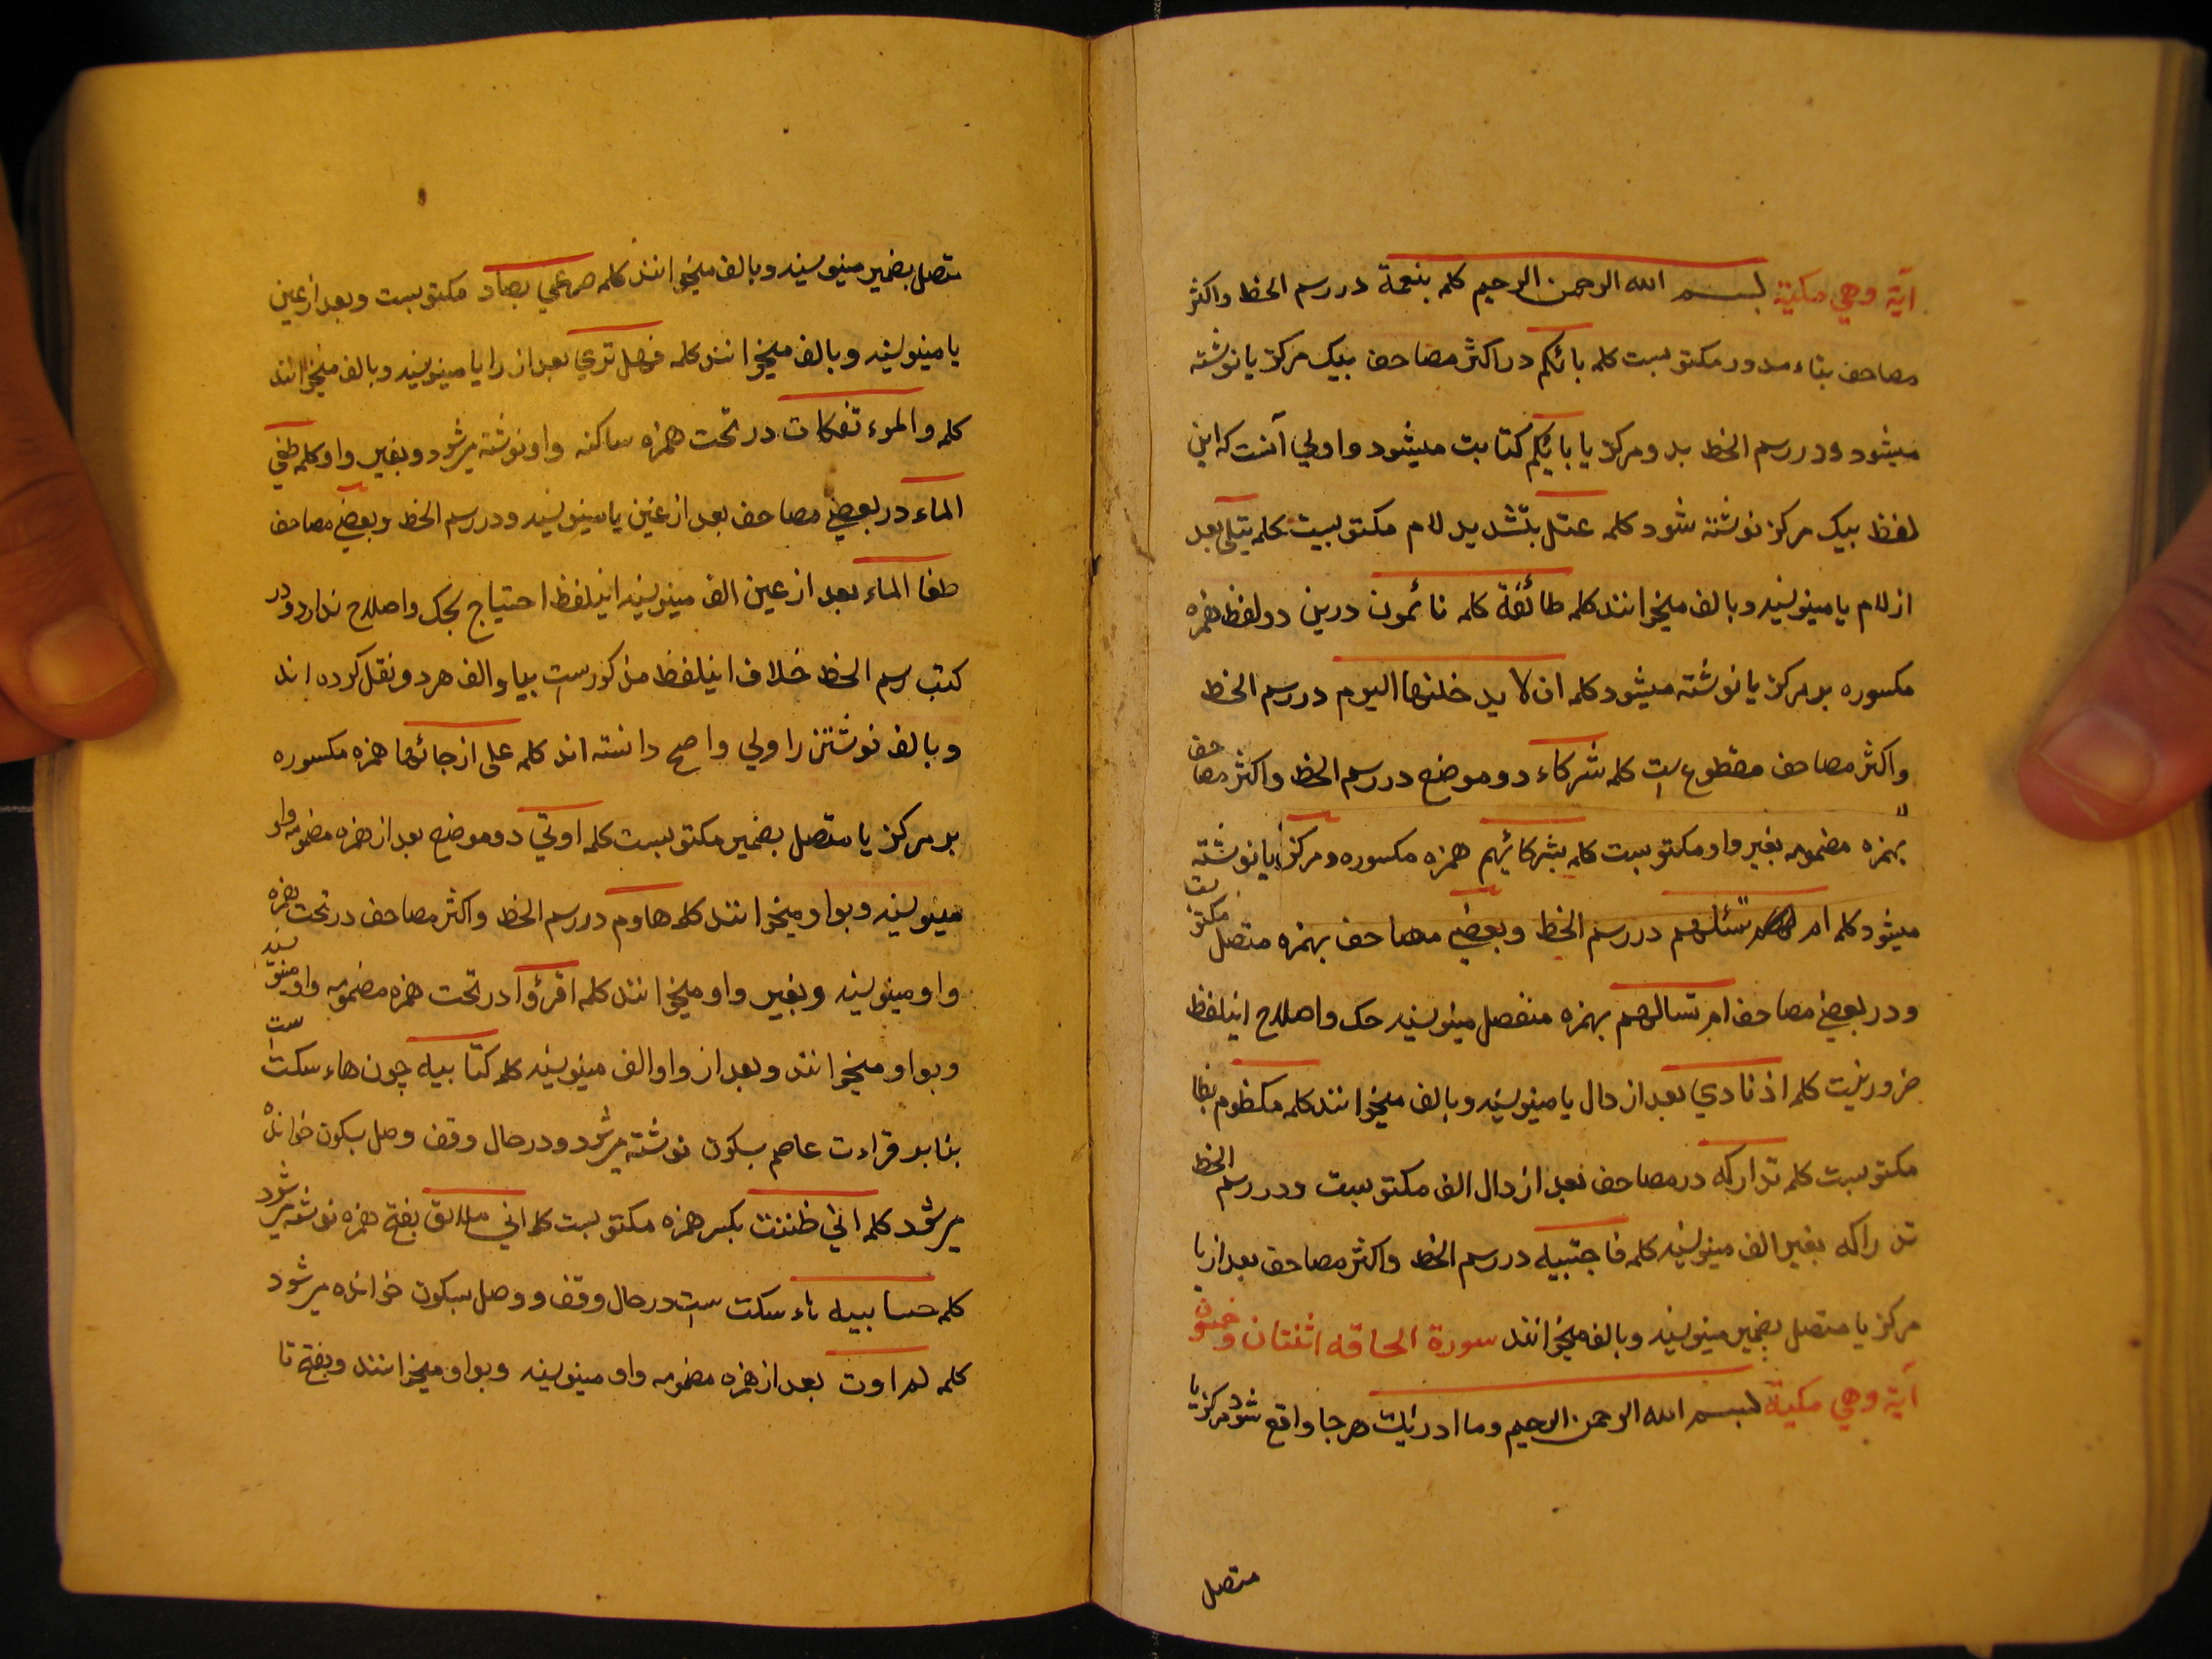 آية وهي مكية بسم الله الرحمن الرحيم كلمه بنعمة در رسم الخط واكثر
مصاحف بتاء مدور مكتوبست كلمه بائكم در اكثر مصاحف بيك مركز يا نوشته
ميشود ودر رسم الخط بدو مركز يا بائيكم كتابت ميشود واولي آنست كه اين
لفظ بيك مركز نوشته شود كلمه عتل بتشديد لام مكتوبست كلمه تتلى بعد
از لام يا مينويسند وبالف ميخوانند كلمه طائفة كلمه نائمون درين دو لفظ همزه
مكسوره بر مركز يا نوشته ميشود كلمه ان لا يدخلنها اليوم در رسم الخط
واكثر مصاحف مقطوع ست كلمه شركاء دو موضع در رسم الخط واكثر مصاحف
بهمزه مضمومه بغير واو مكتوبست كلمه بشركائهم همزه مكسوره ومركز يا نوشته
ميشود كلمه ام تسئلهم در رسم الخط وبعضي مصاحف بهمزه متصل مكتوبست
ودر بعضي مصاحف ام تسالهم بهمزه منفصل مينويسند حك واصلاح اينلفظ
ضرور نيست كلمه اذ نادي بعد از دال يا مينويسند وبالف ميخوانند كلمه مكظوم بظا
مكتوبست كلمه تداركه در مصاحف بعد از دال الف مكتوبست ودر رسم الخط
تدراكه بغير الف مينويسند كلمه فاجتبيه در رسم الخط واكثر مصاحف بعد از با
مركز يا متصل بضمير مينويسند وبالف ميخوانند سورة الحاقه اثنتان وخمسون
آية وهي مكية بسم الله الرحمن الرحيم وما ادريك هر جا واقع شود مركز يا
متصل
متصل بضمير مينويسند وبالف ميخوانند كلمه صرعي بصاد مكتوبست وبعد از عين
يا مينويسند وبالف ميخوانند كلمه فهل تري بعد از را يا مينويسند وبالف ميخوانند
كلمه والموء تفكات در تحت همزه ساكنه واو نوشته ميشود وبغير واو كلمه طغي
الماء در بعضي مصاحف بعد از غين يا مينويسند ودر رسم الخط وبعضي مصاحف
طغا الماء بعد از عين الف مينويسند اينلفظ احتياج بحك واصلاح ندارد ودر
كتب رسم الخط خلاف اينلفظ مذكورست بيا والف هر دو نقل كرده اند
وبالف نوشتن را اولي واصح دانسته اند كلمه على ارجائها همزه مكسوره
بر مركز يا متصل بضمير مكتوبست كلمه اوتي دو موضع بعد از همزه مضمومه واو
مينويسند وبواو ميخوانند كلمه هاوم در رسم الخط واكثر مصاحف در تحت همزه
واو مينويسند وبغير واو ميخوانند كلمه اقرؤا در تحت همزه مضمومه واو مينويسند
وبواو ميخوانند وبعد از واو الف مينويسند كلمه كتابيه چون هاء سكت ست
بنابر قراءت عاصم بسكون نوشته ميشود ودر حال وقف وصل بسكون خوانده
ميشود كلمه اني ظننت بكسر همزه مكتوبست كلمه اني ملاق بفتح همزه نوشته ميشود
كلمه حسابيه هاء سكت ست در حال وقف ووصل بسكون خوانده ميشود
كلمه لم اوت بعد از همزه مضمومه واو مينويسند وبواو ميخوانند وبفتح تا